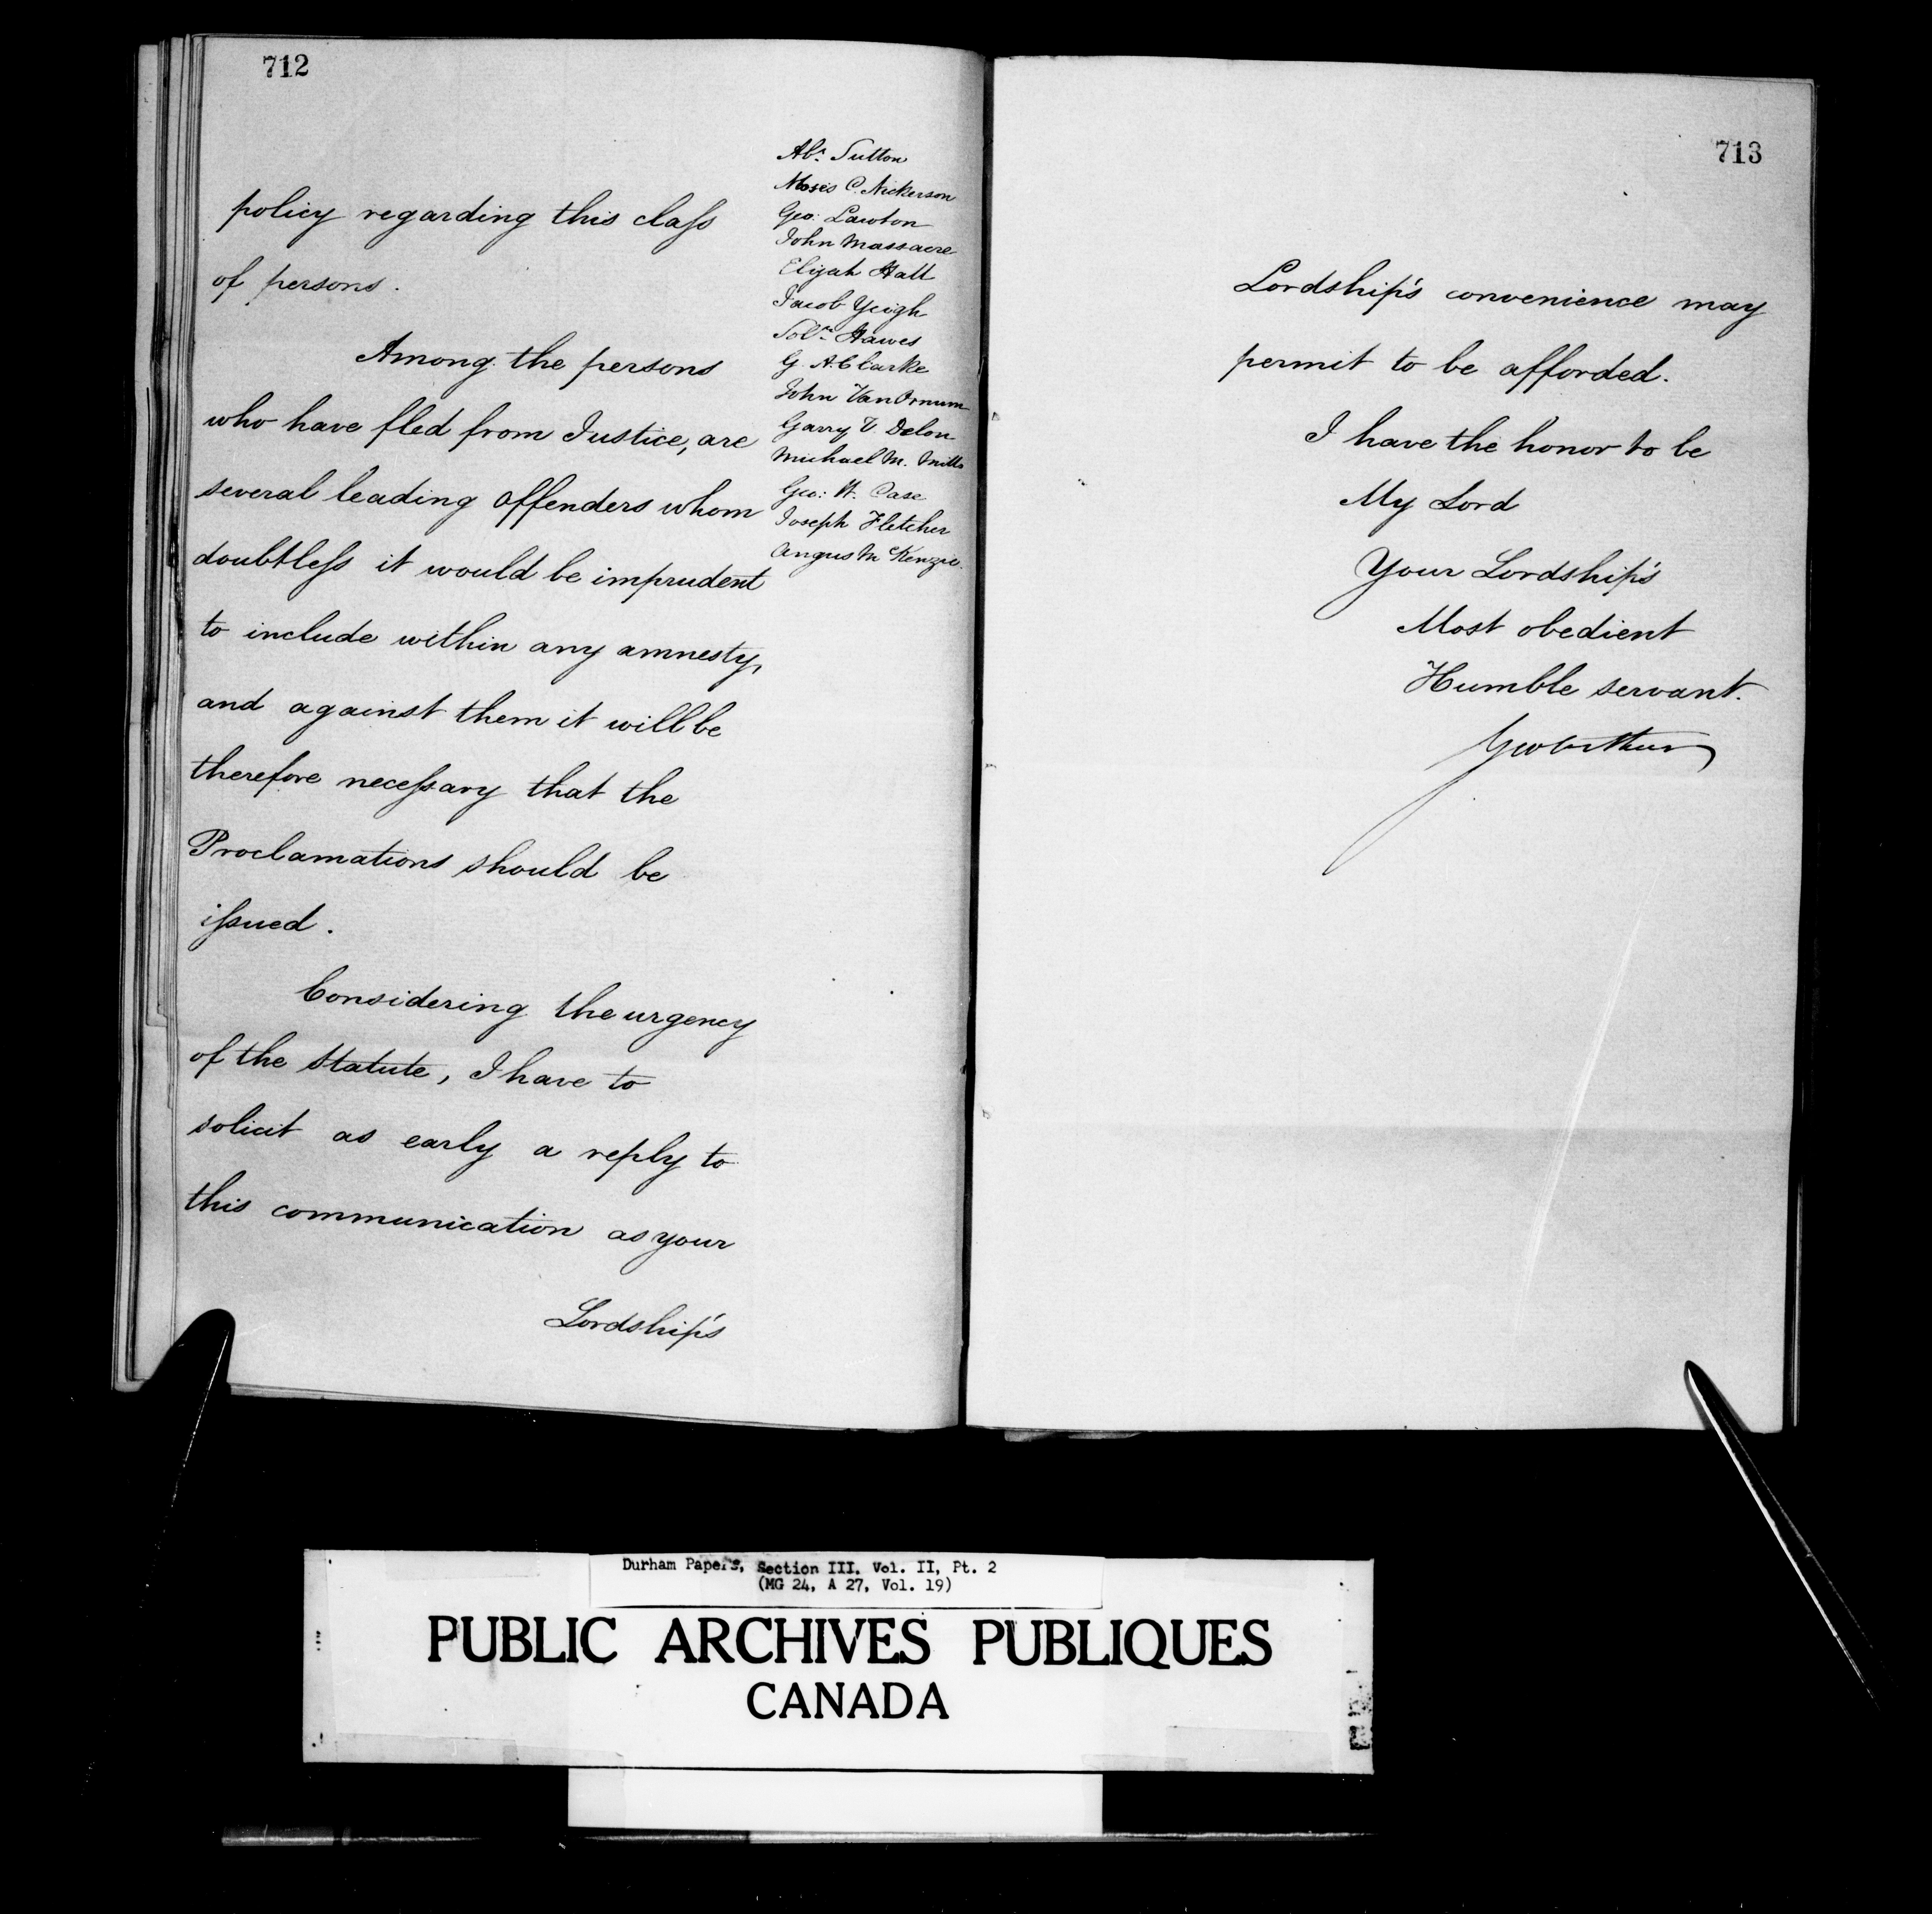 712
policy regarding this class
of persons.
Among the persons
who have fled from Justice, are
several leading offenders whom
doubtless it would be imprudent
to include within any amnesty,
and against them it will be
therefore necessary that the
Proclamations should be
issued.
Considering the urgency
of the Statute, I have to
solicit as early a reply to
this communication as your
Lordship's
Abm Sutton
Moses C. Nickerson
Geo: Lawton
John Massacre
Elijah Hall
Jacob Yeigh
Soln Hawes
G. A. Clarke
John Van Ornum
Garry V. Delon
Michael M. Mills
Geo: W. Case
Joseph Fletcher
Angus McKenzie.
713
Lordship's convenience may
permit to be afforded.
I have the honor to be
My Lord
Your Lordship's
Most obedient
Humble servant.
Geo Arthur
Durham Papers, Section III. Vol. II, Pt. 2
(MG 24, A 27, Vol. 19)
PUBLIC ARCHIVES PUBLIQUES
CANADA